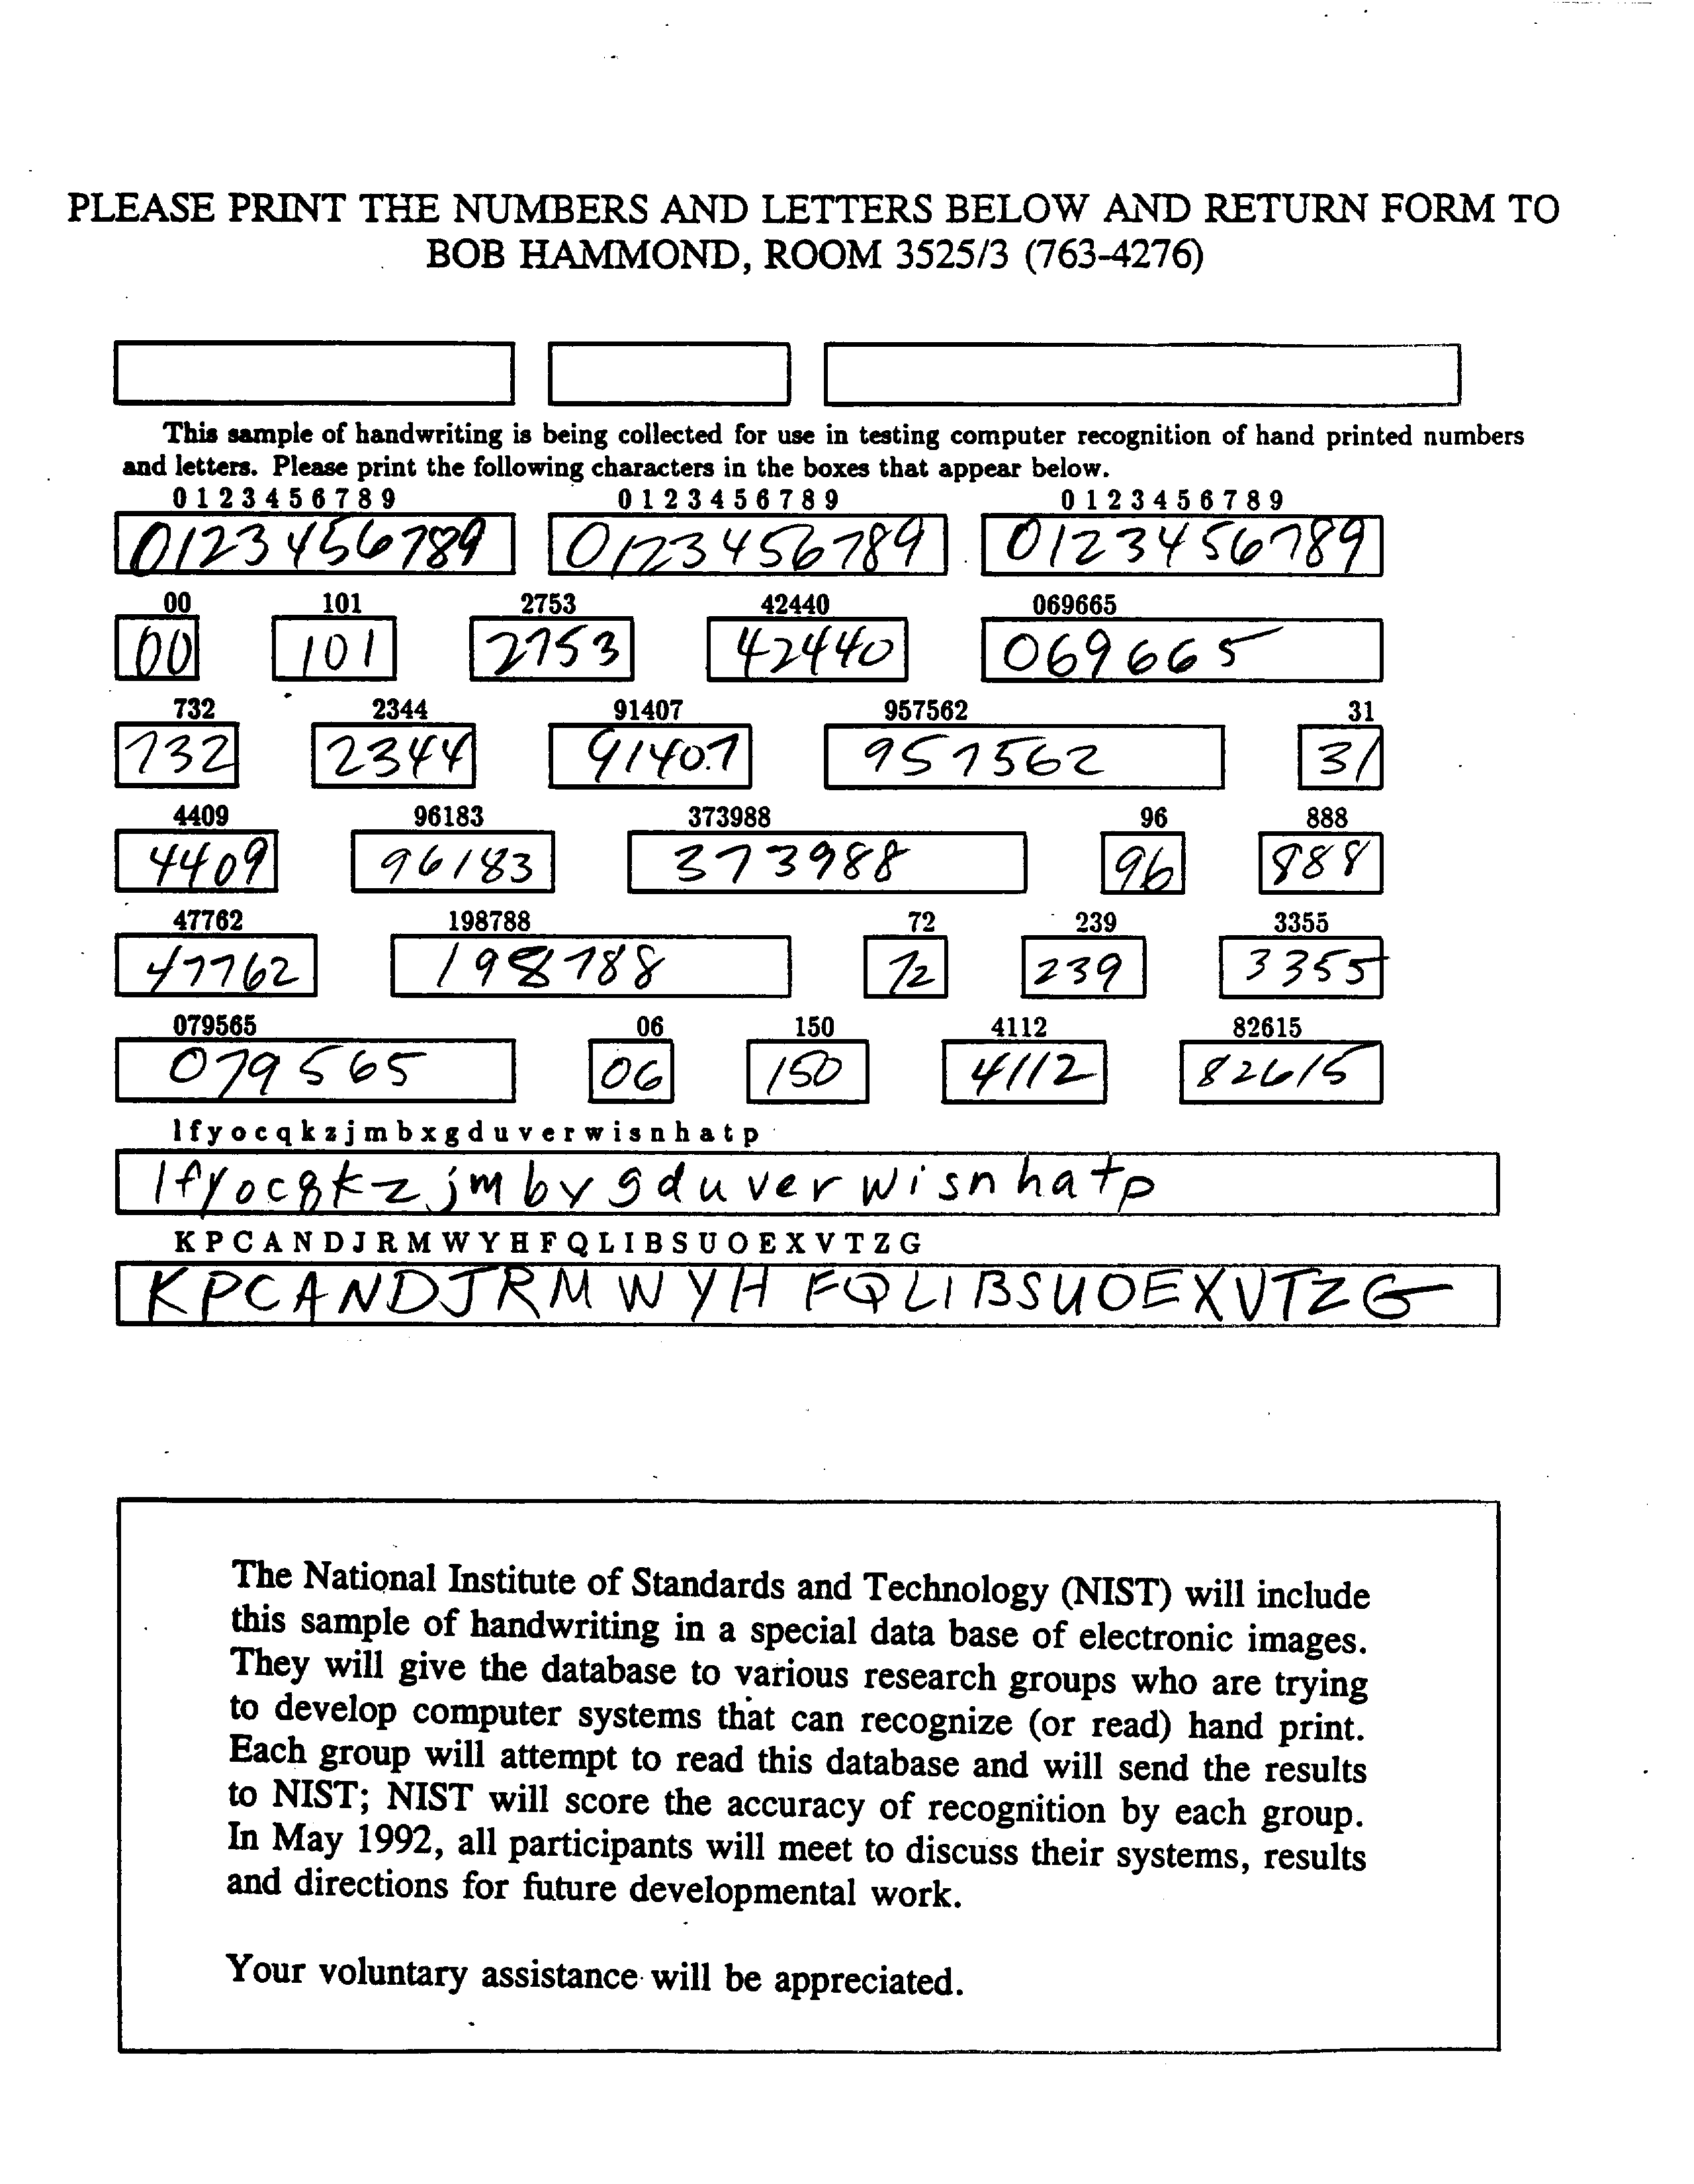 PLEASE PRINT THE NUMBERS AND LETTERS BELOW AND RETURN FORM TO
BOB HAMMOND, ROOM 3525/3 (763-4276)
This sample of handwriting is being collected for use in testing computer recognition of hand printed numbers
and letters. Please print the following characters in the boxes that appear below.
0 1 2 3 4 5 6 7 8 9 0 1 2 3 4 5 6 7 8 9 0 1 2 3 4 5 6 7 8 9
0123456789 0123456789 0123456789
00 101 2753 42440 069665
00 101 2753 42440 069665
732 2344 91407 957562 31
732 2344 91407 957562 31
4409 96183 373988 96 888
4409 96183 373988 96 888
47762 198788 72 239 3355
47762 198788 72 239 3355
079565 06 150 4112 82615
079565 06 150 4112 82615
l f y o c q k z j m b x g d u v e r w i s n h a t p
lfyocqkzjmbxgduverwisnhatp
K P C A N D J R M W Y H F Q L I B S U O E X V T Z G
KPCANDJRMWYHFQLIBSUOEXVTZG
The National Institute of Standards and Technology (NIST) will include
this sample of handwriting in a special data base of electronic images.
They will give the database to various research groups who are trying
to develop computer systems that can recognize (or read) hand print.
Each group will attempt to read this database and will send the results
to NIST; NIST will score the accuracy of recognition by each group.
In May 1992, all participants will meet to discuss their systems, results
and directions for future developmental work.
Your voluntary assistance will be appreciated.